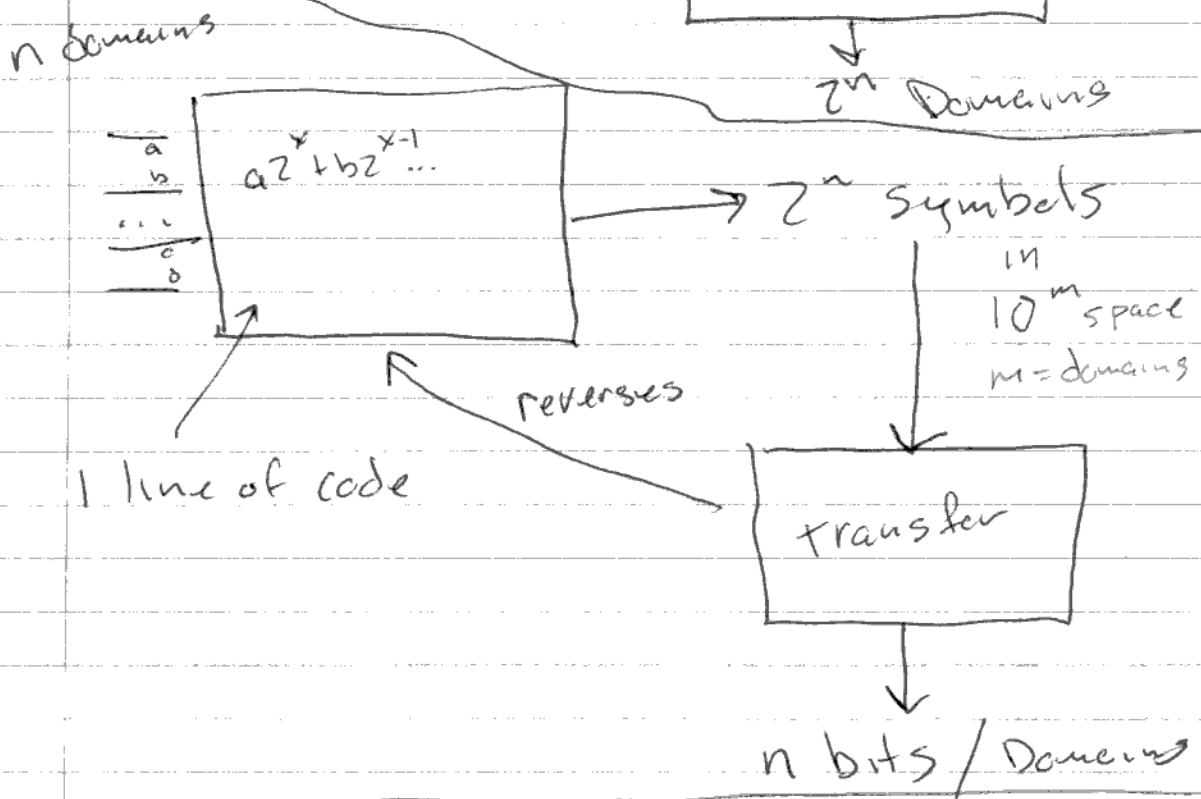 n domains
2ⁿ Domains
a
b
...
c
a2ˣ+b2ˣ⁻¹...
2ⁿ symbols
in
10ᵐ space
m = domains
reverses
1 line of code
transfer
n bits / Domains